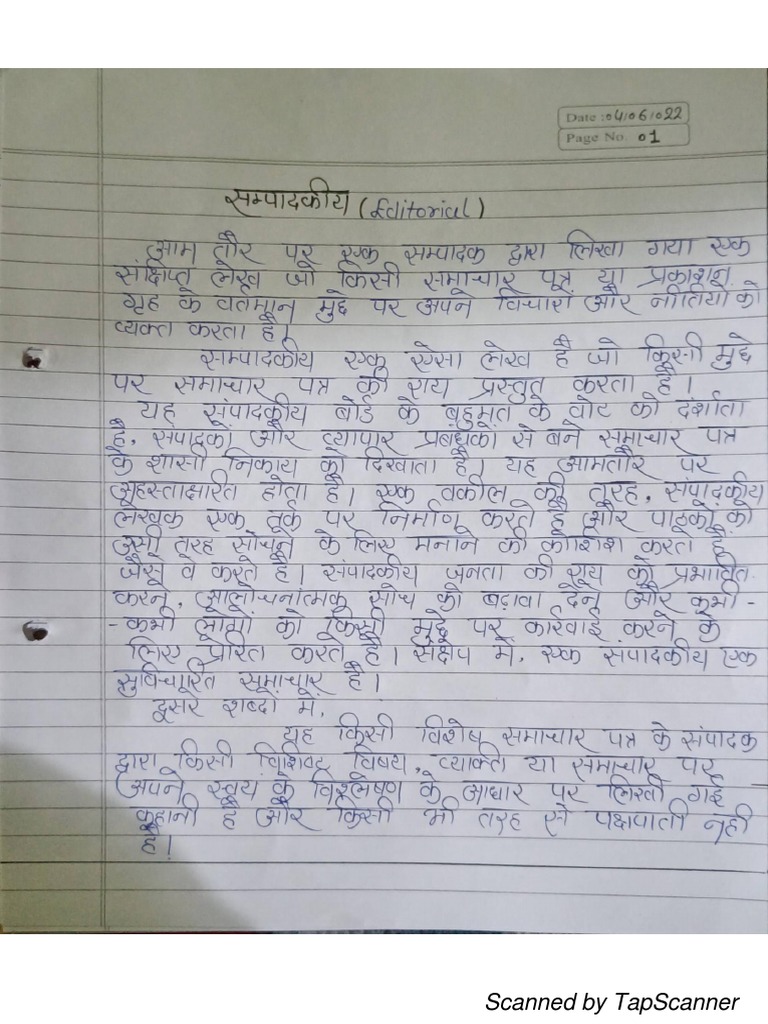 Date : 04/06/022
Page No. 01
सम्पादकीय (Editorial)
आम तौर पर एक सम्पादक द्वारा लिखा गया एक
संक्षिप्त लेख जो किसी समाचार पत्र या प्रकाशन
गृह के वर्तमान मुद्दे पर अपने विचारों और नीतियों को
व्यक्त करता है।
सम्पादकीय एक ऐसा लेख है जो किसी मुद्दे
पर समाचार पत्र की राय प्रस्तुत करता है।
यह संपादकीय बोर्ड के बहुमत के वोट को दर्शाता
है, संपादकों और व्यापार प्रबंधकों से बने समाचार पत्र
के शासी निकाय को दिखाता है। यह आमतौर पर
अहस्ताक्षरित होता है। एक वकील की तरह, संपादकीय
लेखक एक तर्क पर निर्माण करते हैं और पाठकों को
उसी तरह सोचने के लिए मनाने की कोशिश करते हैं
जैसे वे करते हैं। संपादकीय जनता की राय को प्रभावित
करने, आलोचनात्मक सोच को बढ़ावा देने और कभी -
- कभी लोगों को किसी मुद्दे पर कार्रवाई करने के
लिए प्रेरित करते हैं। संक्षेप में, एक संपादकीय एक
सुविचारित समाचार है।
दूसरे शब्दों में,
यह किसी विशेष समाचार पत्र के संपादक
द्वारा किसी विशिष्ट विषय, व्यक्ति या समाचार पर
अपने स्वयं के विश्लेषण के आधार पर लिखी गई
कहानी है और किसी भी तरह से पक्षपाती नहीं
है।
Scanned by TapScanner